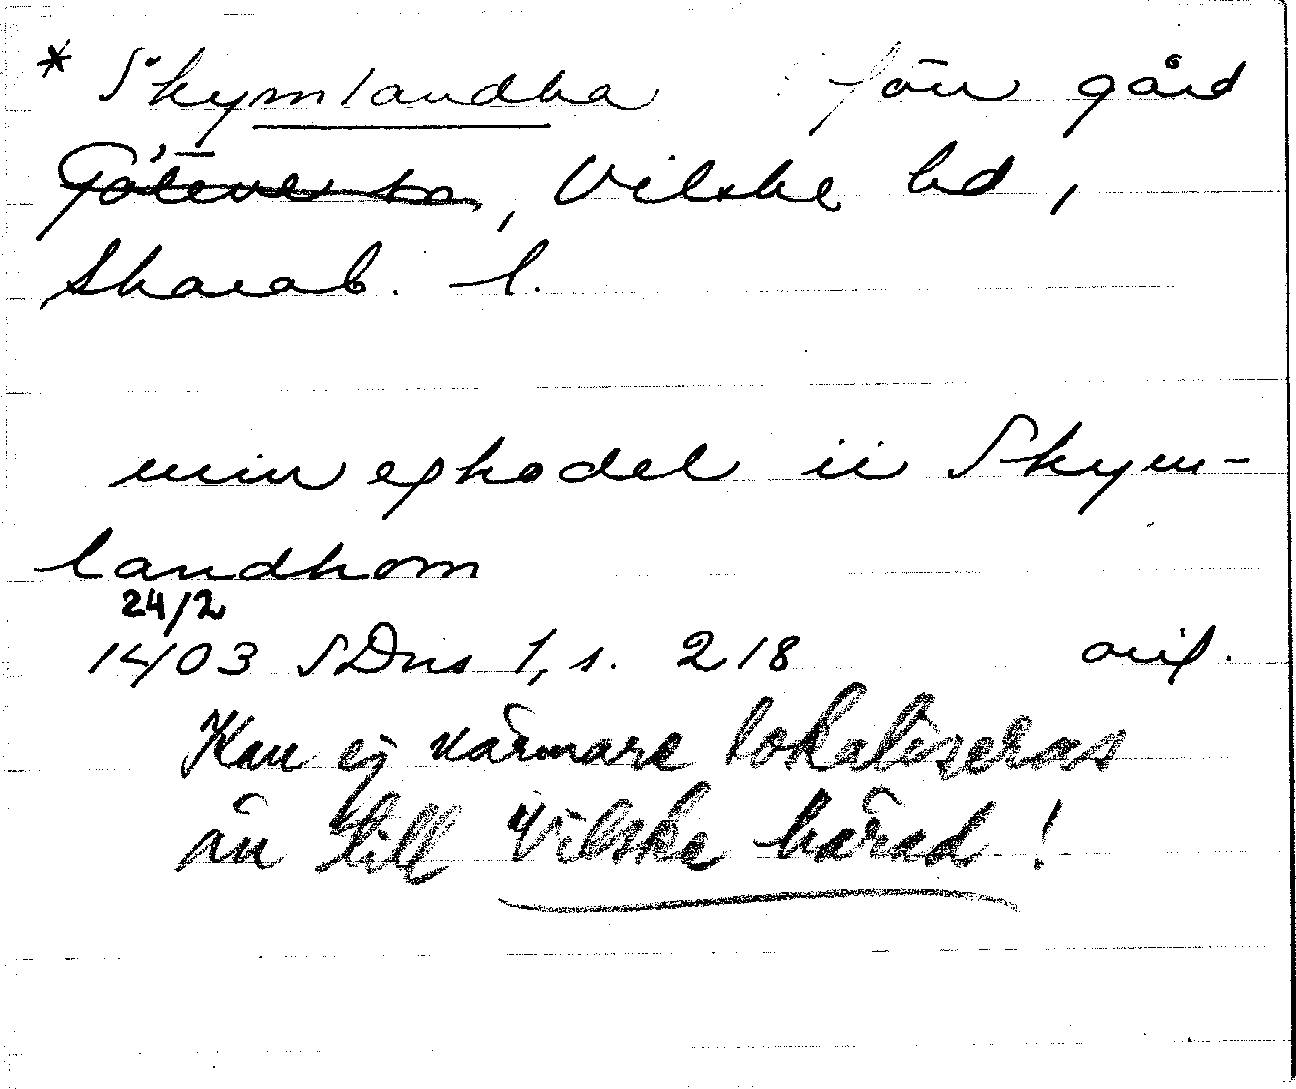 * Skymlandha förr gård
Göteve sn, Vilske hd,
Skarab. l.
min eghodel ii Skym-
landhom
24/2
1403 SDns 1, s. 218 orig.
Kan ej närmare lokaliseras
än till Vilske härad!